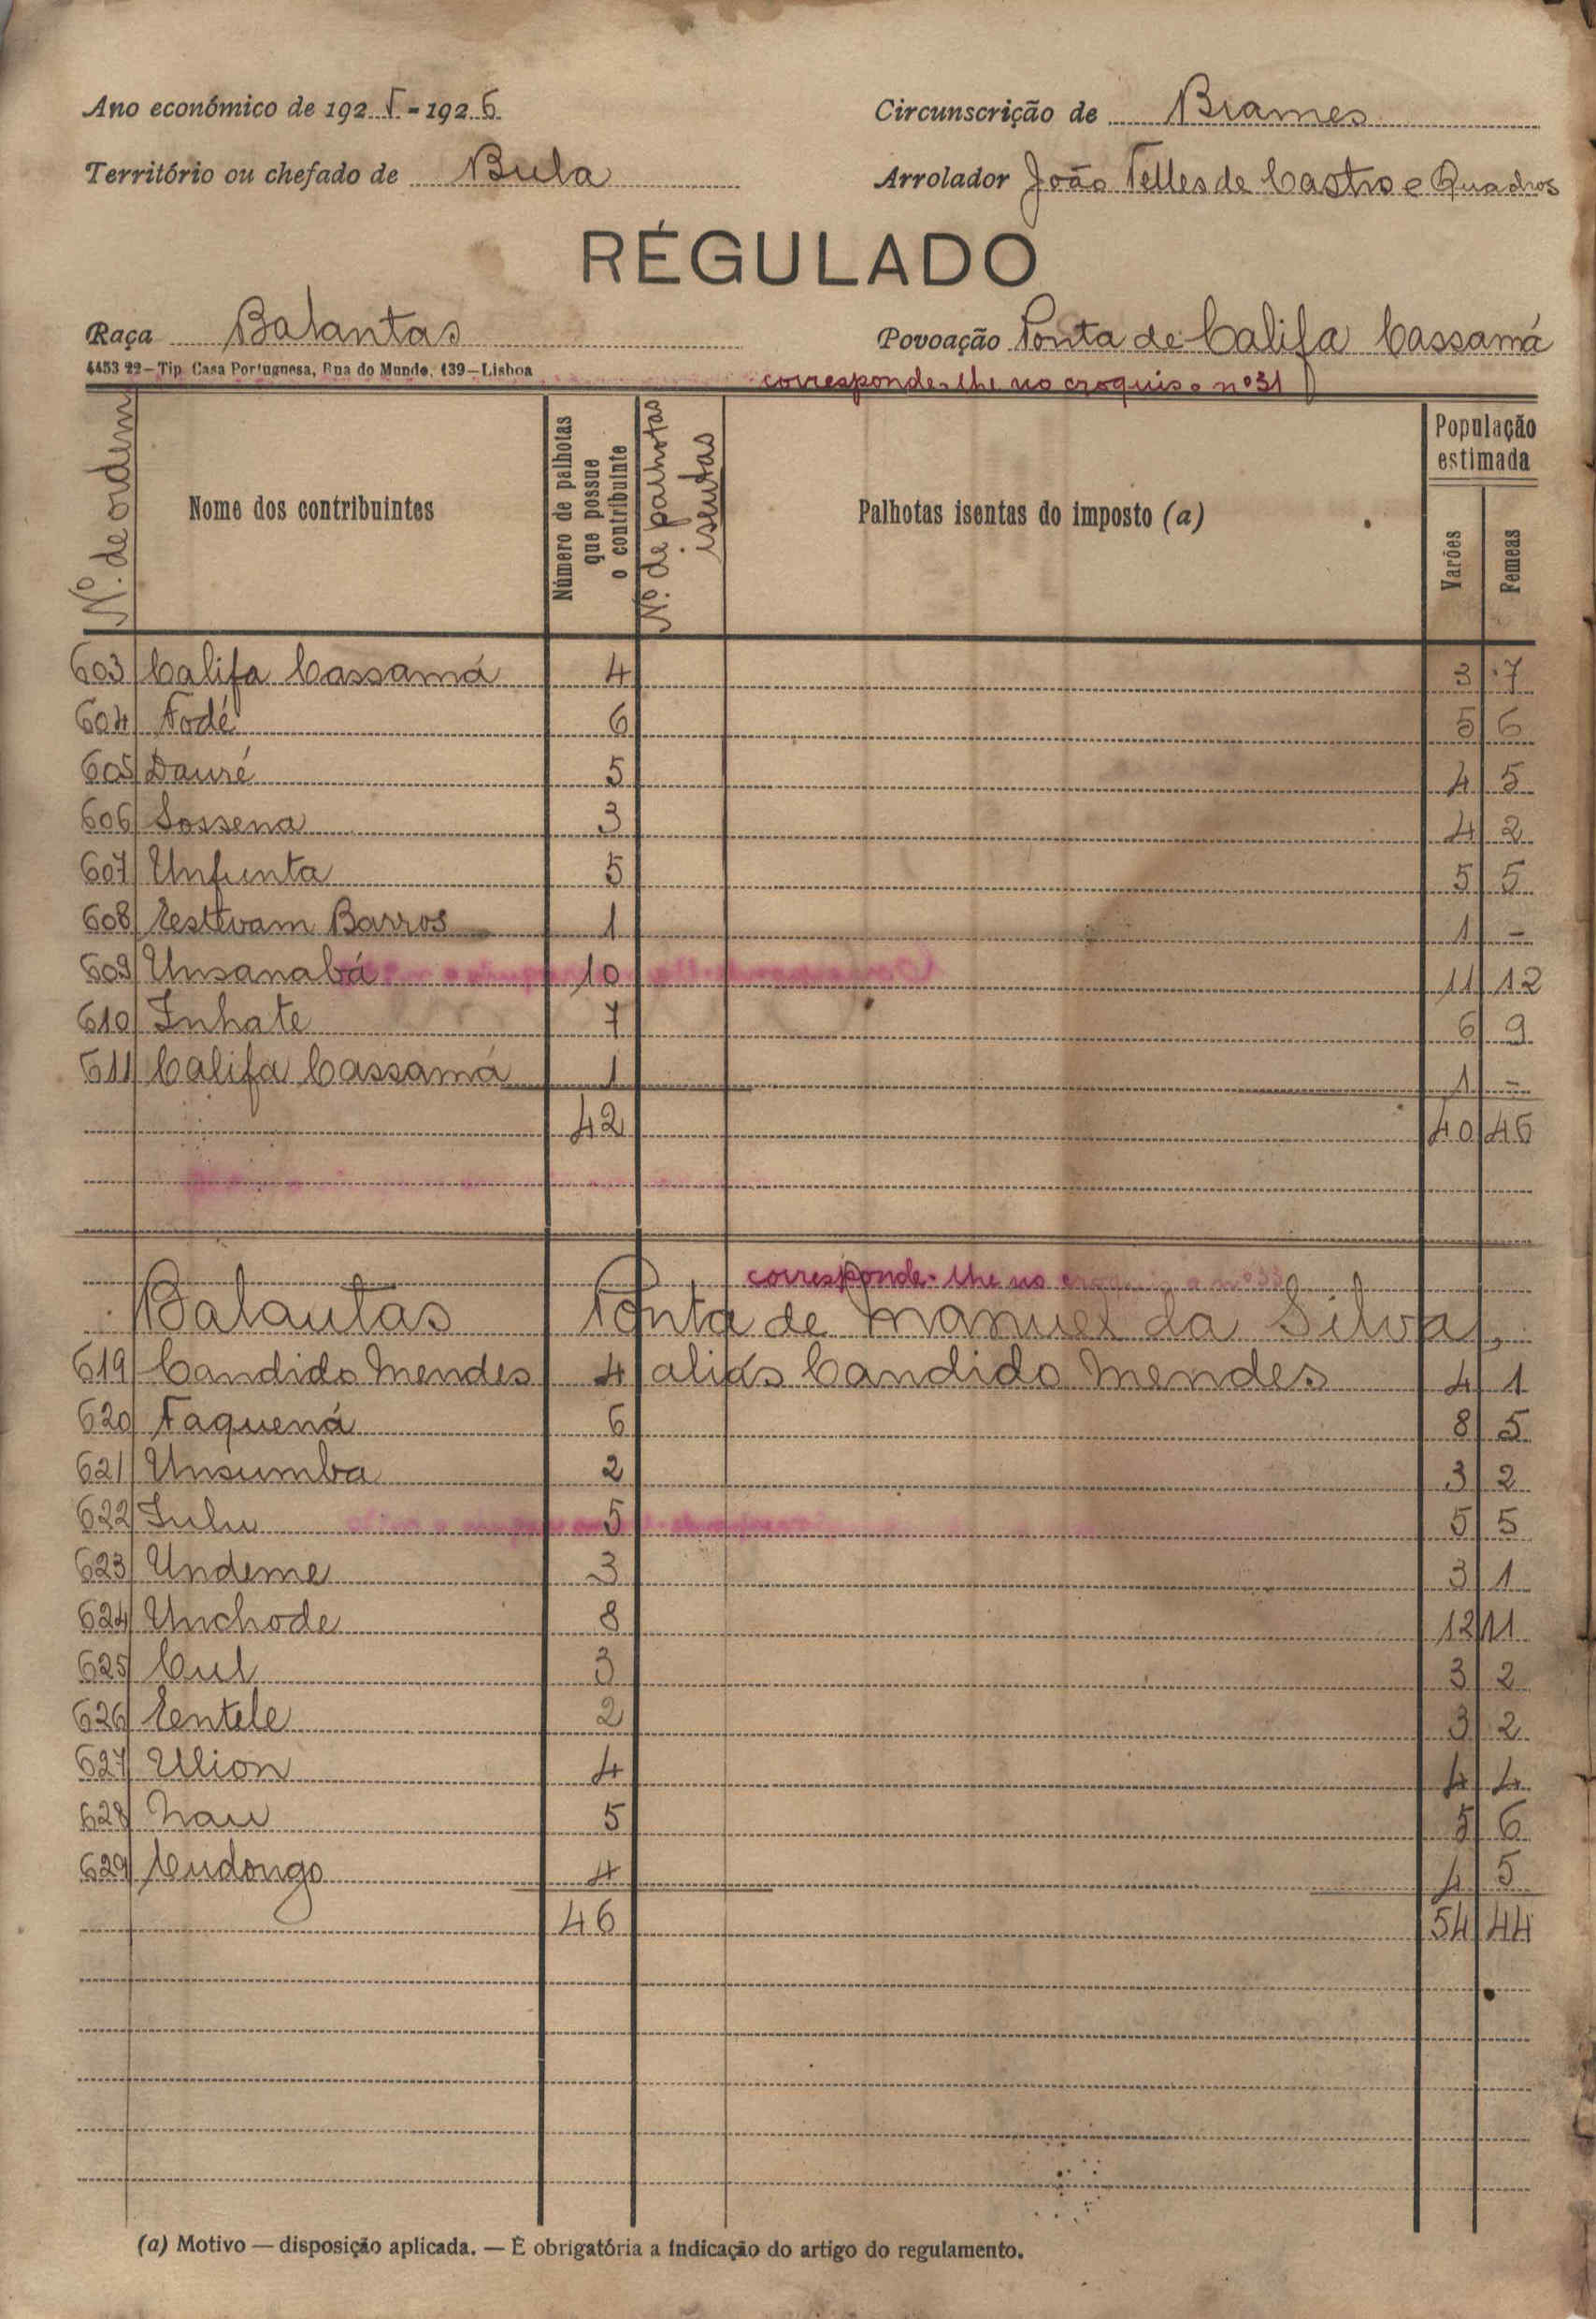 Ano económico de 1925-1926
Circunscrição de Brames
Território ou chefado de Bula
Arrolador João Telles de Castro e Quadros
RÉGULADO
Raça Balantas
Povoação Ponta de Califa Cassamá
4453 22—Tip. Casa Portuguesa, Rua do Mundo, 139—Lisboa
corresponde-lhe no croquis o nº 31
Nº. de ordem
Nome dos contribuintes
Número de palhotas que possue o contribuinte
Nº. de palhotas isentas
Palhotas isentas do imposto (a)
População estimada
Varões
Femeas
603 Califa Cassamá 4 3 7
604 Fodé 6 5 6
605 Dauré 5 4 5
606 Sossena 3 4 2
607 Unfunta 5 5 5
608 Estevam Barros 1 1 -
609 Unsanabá 10 11 12
610 Inhate 7 6 9
611 Califa Cassamá 1 1 -
42 40 46
corresponde-lhe no croquis o nº 33
Balantas Ponta de Manuel da Silva,
619 Candido Mendes 4 aliás Candido Mendes 4 1
620 Faquená 6 8 5
621 Unsumba 2 3 2
622 Iulu 5 5 5
623 Undeme 3 3 1
624 Unchode 8 12 11
625 Cul 3 3 2
626 Eentele 2 3 2
627 Ulion 4 4 4
628 Nau 5 5 6
629 Cudongo 4 4 5
46 54 44
(a) Motivo — disposição aplicada. — É obrigatória a indicação do artigo do regulamento.